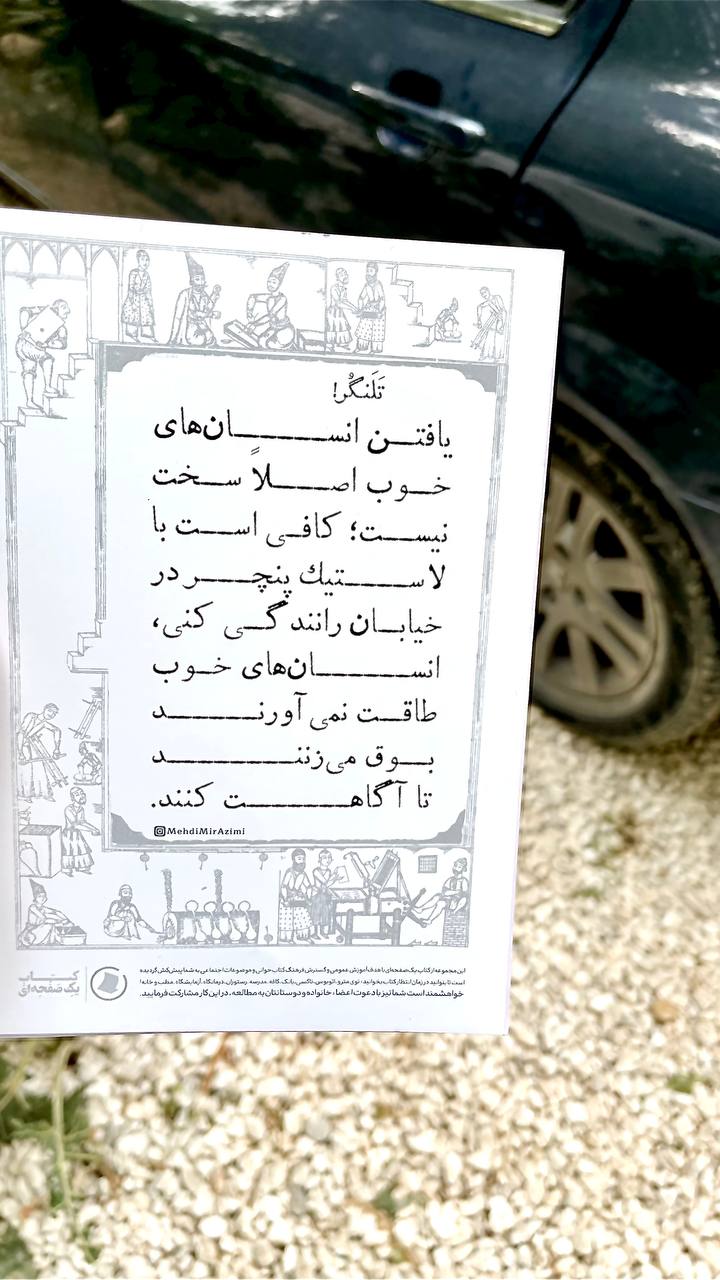 تَلَنگُر!
یافتن انسان‌های
خوب اصلاً سخت
نیست؛ کافی است با
لاستیك پنچر در
خیابان رانندگی کنی،
انسان‌های خوب
طاقت نمی‌آورند
بوق می‌زنند
تا آگاهت کنند.
MehdiMirAzimi
این مجموعه از کتاب یک‌صفحه‌ای با هدف آموزش عمومی و گسترش فرهنگ کتاب‌خوانی و موضوعات اجتماعی به شما پیش‌کش گردیده
است تا بتوانید در زمان انتظار کتاب بخوانید؛ توی مترو، اتوبوس، تاکسی، بانک، کافه، مدرسه، رستوران، درمانگاه، آزمایشگاه، مطب و خانه!
خواهشمند است شما نیز با دعوت اعضا، خانواده و دوستانتان به مطالعه، در این کار مشارکت فرمایید.
کتاب
یک‌صفحه‌ای